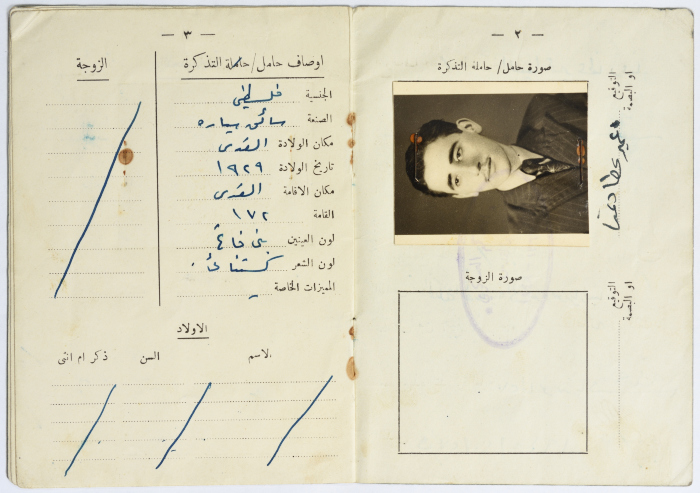 — ٢ —
صورة حامل/ حاملة التذكرة
التوقيع
او البصمة
صورة الزوجة
التوقيع
او البصمة
— ٣ —
اوصاف حامل/ حاملة التذكرة
الجنسية فلسطيني
الصنعة سائق سياره
مكان الولادة القدس
تاريخ الولادة ١٩٢٩
مكان الاقامة القدس
القامة ١٧٢
لون العينين بني فاتح
لون الشعر كستنائي
المميزات الخاصة -
الزوجة
الاولاد
الاسم السن ذكر ام انثى